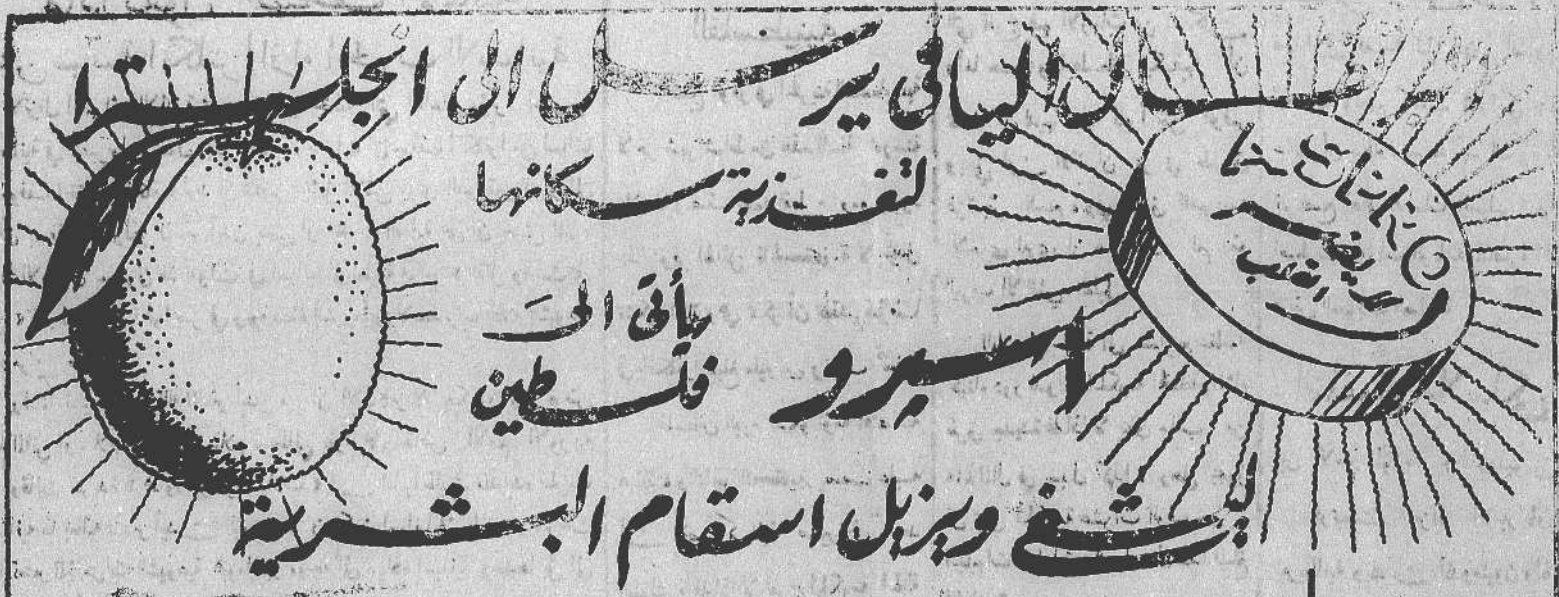 برتقال اليافي يرسل الى انجلترا
لتغذية سكانها
اسبرو
يأتى الىَ
فلسطين
ليشفي ويزيل اسقام البشرية
لا يضر
القلب